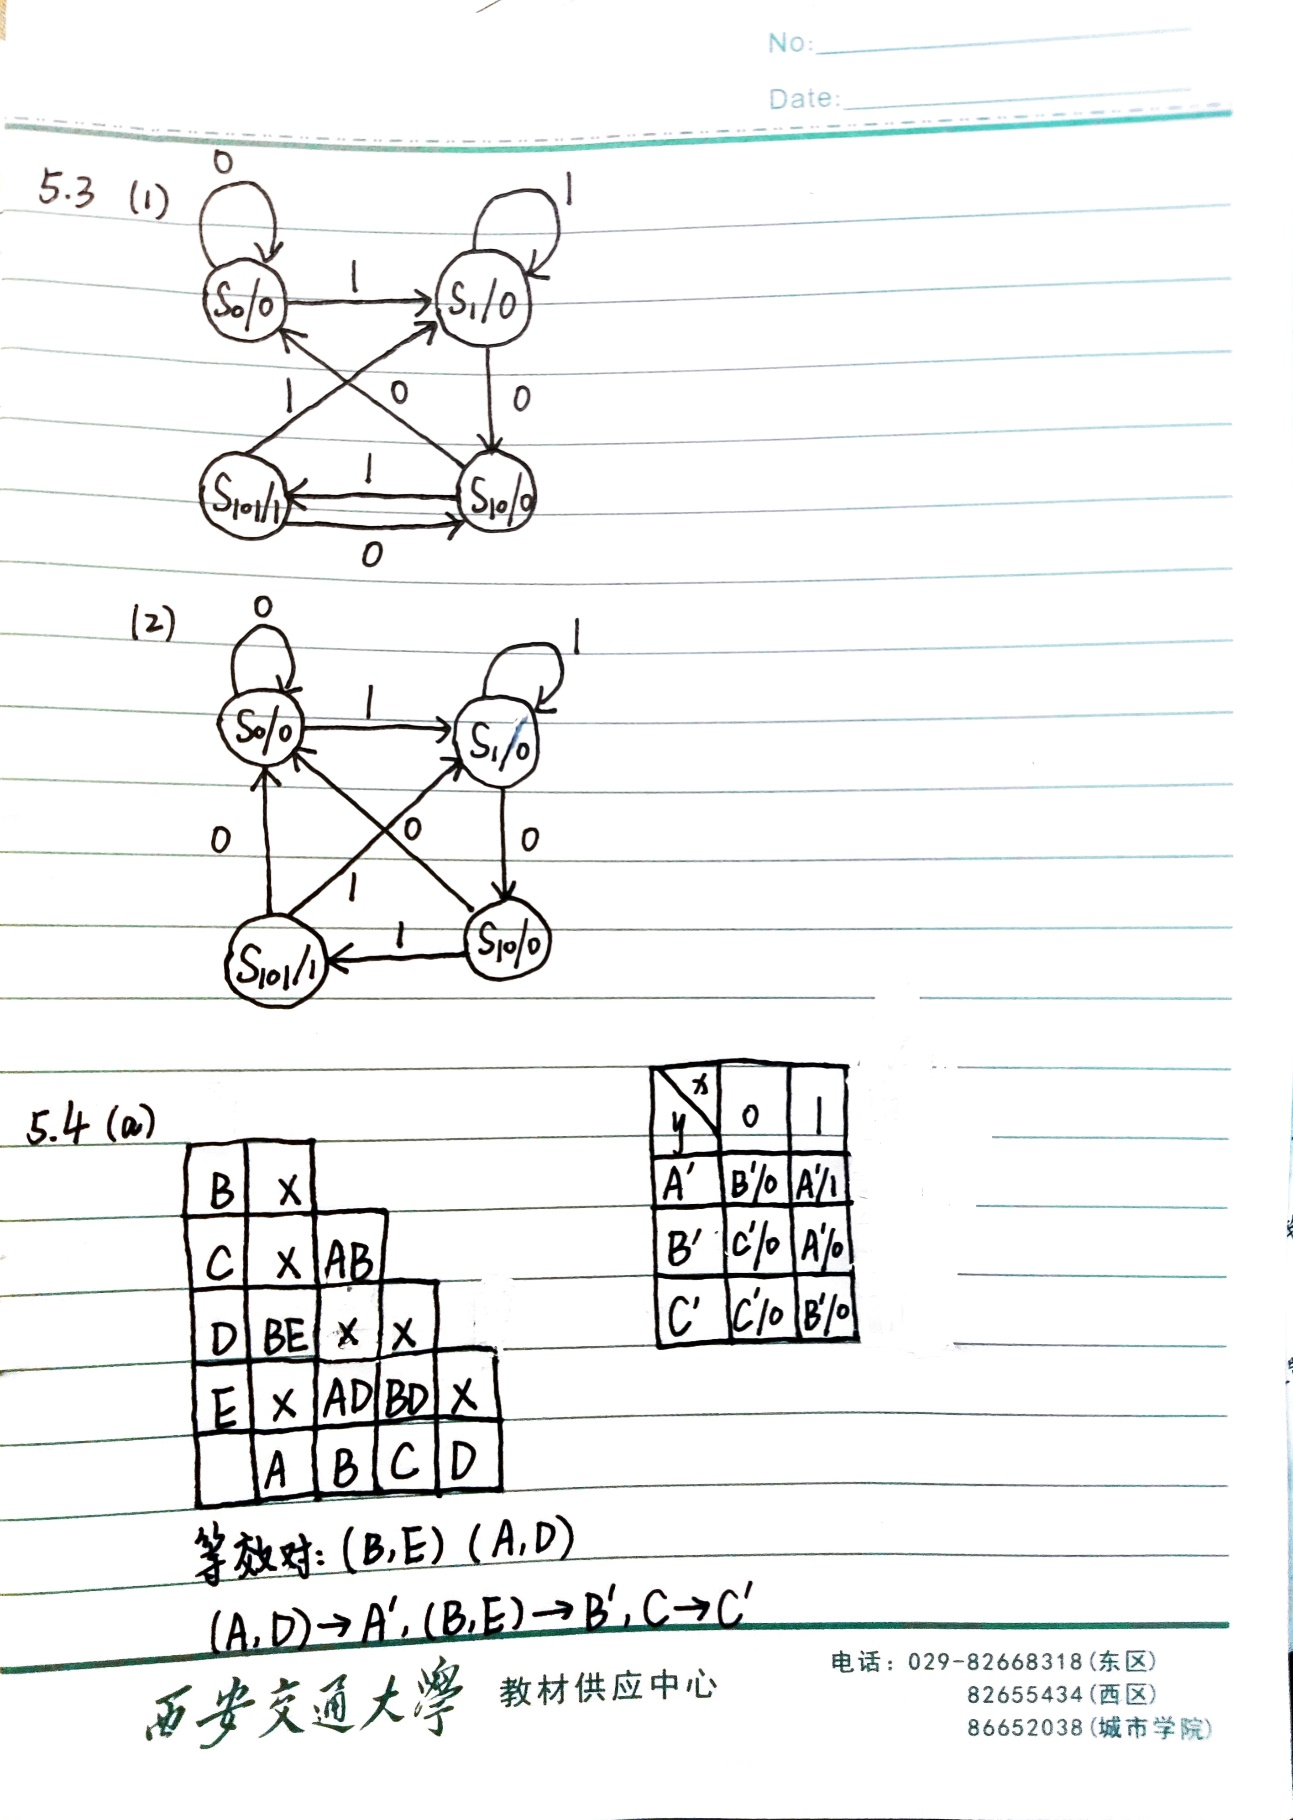 No:
Date:
5.3 (1)
0
1
S0/0
1
S1/0
1
0
0
S101/1
1
S10/0
0
(2)
0
1
S0/0
1
S1/0
0
0
0
1
S101/1
1
S10/0
5.4 (a)
B X
C X AB
D BE X X
E X AD BD X
A B C D
x
y 0 1
A' B'/0 A'/1
B' C'/0 A'/0
C' C'/0 B'/0
等效对: (B,E) (A,D)
(A,D)→A', (B,E)→B', C→C'
西安交通大学 教材供应中心
电话: 029-82668318(东区)
82655434(西区)
86652038(城市学院)